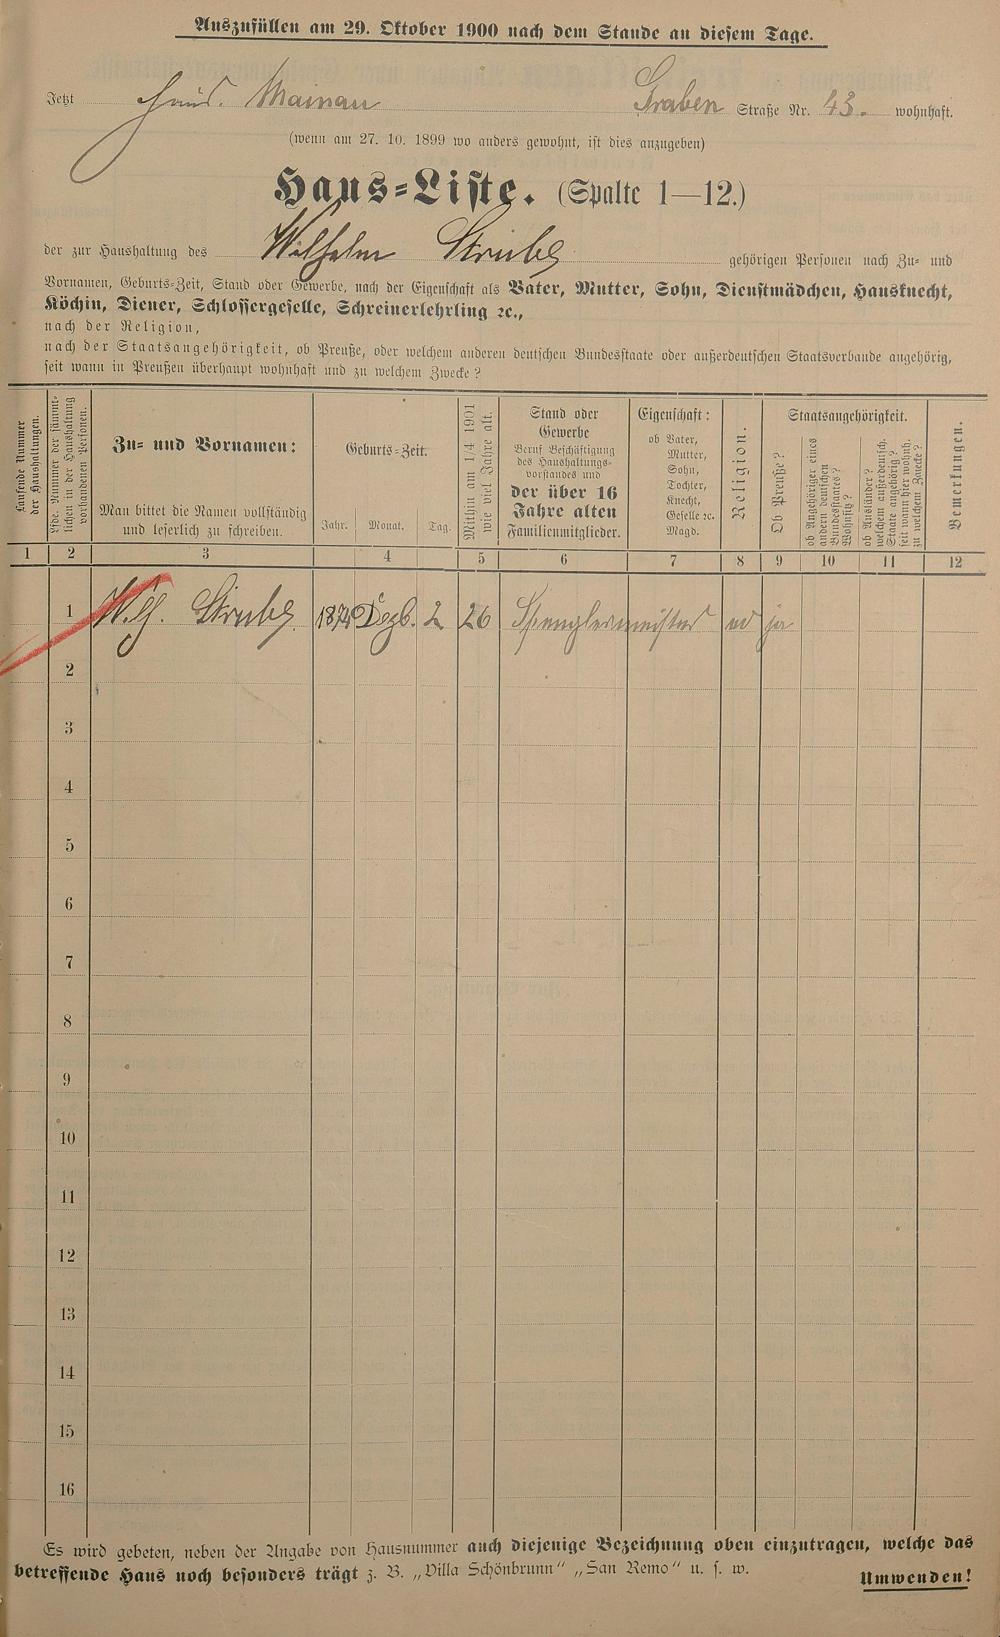 Auszufüllen am 29. Oktober 1900 nach dem Stande an diesem Tage.
Jetzt Haus. Mainau Graben Straße Nr. 43. wohnhaft.
(wenn am 27. 10. 1899 wo anders gewohnt, ist dies anzugeben)
Haus=Liste. (Spalte 1—12.)
der zur Haushaltung des Wilhelm Strube gehörigen Personen nach Zu= und
Vornamen, Geburts=Zeit, Stand oder Gewerbe, nach der Eigenschaft als Vater, Mutter, Sohn, Dienstmädchen, Hausknecht,
Köchin, Diener, Schlossergeselle, Schreinerlehrling ꝛc.,
nach der Religion,
nach der Staatsangehörigkeit, ob Preuße, oder welchem anderen deutschen Bundesstaate oder außerdeutschen Staatsverbande angehörig,
seit wann in Preußen überhaupt wohnhaft und zu welchem Zwecke?
Laufende Nummer
der Haushaltungen.
Lfde. Nummer der sämmt=
lichen in der Haushaltung
vorhandenen Personen.
Zu= und Vornamen:
Man bittet die Namen vollständig
und leserlich zu schreiben.
Geburts=Zeit.
Jahr. Monat. Tag.
Mithin am 1/4 1901
wie viel Jahre alt.
Stand oder
Gewerbe
Beruf Beschäftigung
des Haushaltungs=
vorstandes und
der über 16
Jahre alten
Familienmitglieder.
Eigenschaft:
ob Vater,
Mutter,
Sohn,
Tochter,
Knecht,
Geselle ꝛc.
Magd.
Religion.
Staatsangehörigkeit.
Ob Preuße?
ob Angehöriger eines
andern deutschen
Bundesstaates?
Wohnsitz?
ob Ausländer?
welchem außerdeutsch.
Staate angehörig?
seit wann hier wohnh.
zu welchem Zwecke?
Bemerkungen.
1 2 3 4 5 6 7 8 9 10 11 12
1 Wilh. Strube 1874 Dezb. 2 26 Spenglermeister ev ja
2
3
4
5
6
7
8
9
10
11
12
13
14
15
16
Es wird gebeten, neben der Angabe von Hausnummer auch diejenige Bezeichnung oben einzutragen, welche das
betreffende Haus noch besonders trägt z. B. „Villa Schönbrunn“ „San Remo“ u. s. w.
Umwenden!